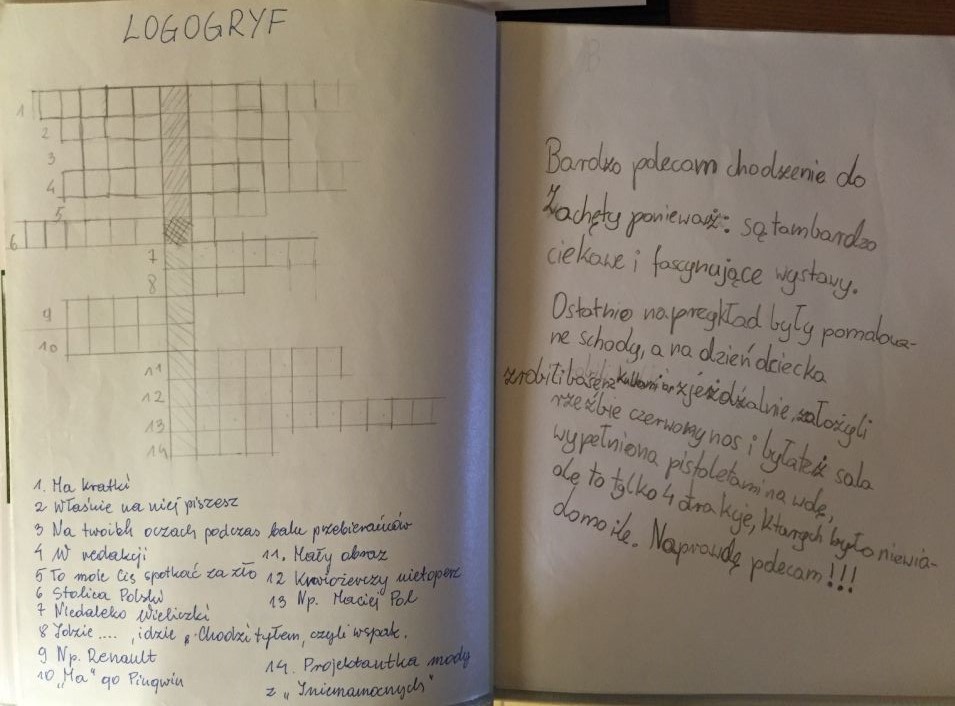 LOGOGRYF
1
2
3
4
5
6
7
8
9
10
11
12
13
14
1. Ma kratki
2 Właśnie na niej piszesz
3 Na twoich oczach podczas balu przebierańców
4 W redakcji
5 To może Cię spotkać za zło
6 Stolica Polski
7 Niedaleko Wieliczki
8 Idzie .... , idzie „Chodzi tyłem, czyli wspak.
9 Np. Renault
10 „Ma" go Pingwin
11. Mały obraz
12 Krwiożerczy nietoperz
13 Np. Maciej Pol
14. Projektantka mody
z „Iniemamocnych"
Bardzo polecam chodzenie do
Zachęty ponieważ: są tam bardzo
ciekawe i fascynujące wystawy.
Ostatnio na pregkład były pomalowa-
ne schody, a na dzień dziecka
zrobili basen z kulkami zjeżdżalnie, założyli
rzeźbie czerwony nos i była też sala
wypełniona pistoletami na wodę,
ale to tylko 4 atrakcje, których było niewia-
domo ile. Naprawdę polecam!!!